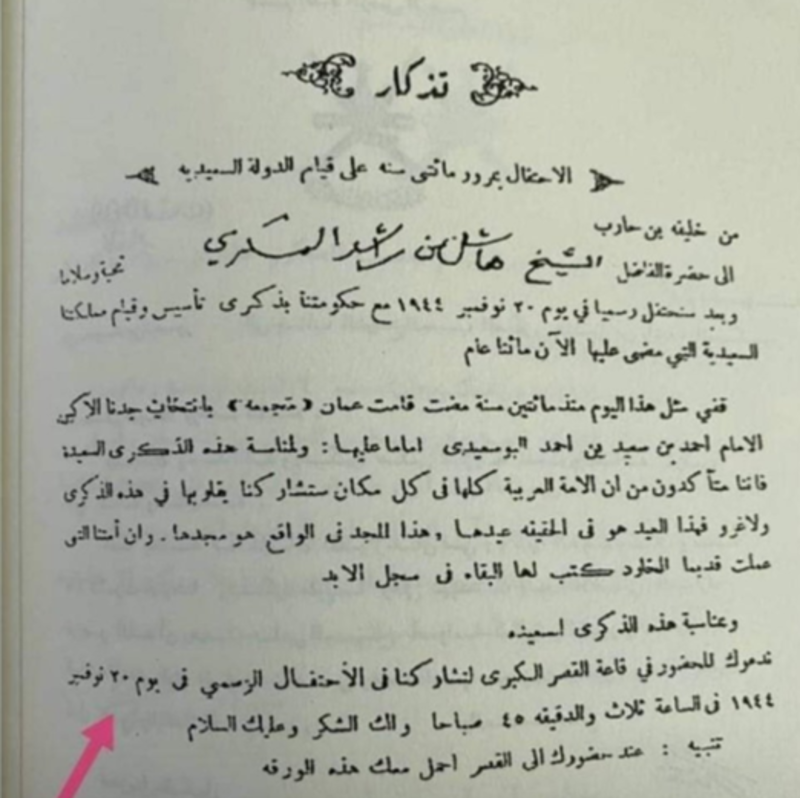 تذكار
الاحتفال بمرور مائتى سنه على قيام الدولة السعيديه
من خليفه بن حارب
الى حضرة الفاضل الشيخ هاشل بن راشد المسكري تحية وسلاما
وبعد سنحتفل رسميا في يوم ٢٠ نوفمبر ١٩٤٤ مع حكومتنا بذكرى تأسيس وقيام مملكتنا
السعيدية التي مضى عليها الآن مائتا عام
ففي مثل هذا اليوم منذ مائتين سنة مضت قامت عمان «متجمعه» بانتخاب جدنا الاكبر
الامام احمد بن سعيد بن احمد البوسعيدى اماما عليها: ولمناسبة هذه الذكرى السعيدة
فاننا متأكدون من ان الامة العربية كلها فى كل مكان ستشاركنا بقلوبها في هذه الذكرى
ولاغرو فهذا العيد هو فى الحقيقه عيدها، وهذا المجد فى الواقع هو مجدها. وان أمتنا التى
عملت قديما للخلود كتب لها البقاء فى سجل الابد
وبمناسبة هذه الذكرى السعيده
ندعوك للحضور في قاعة القصر الكبرى لتشاركنا فى الأحتفال الرسمي فى يوم ٢٠ نوفمبر
١٩٤٤ فى الساعة ثلاث والدقيقه ٤٥ صباحا ولك الشكر وعليك السلام
تنبيه : عند حضورك الى القصر احمل معك هذه الورقه